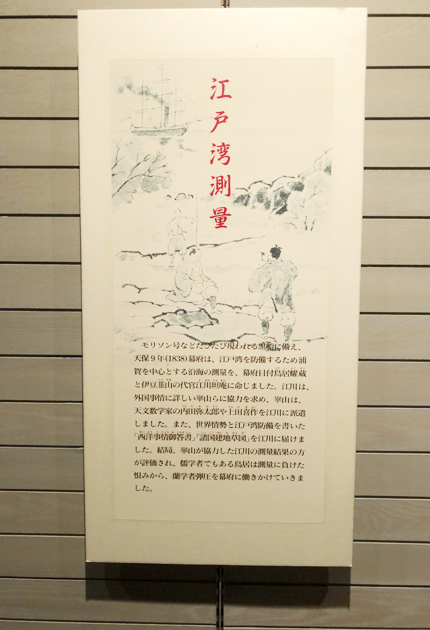 江戸湾測量
モリソン号などたびたび現われる黒船に備え、
天保9年(1838)幕府は、江戸湾を防備するため浦
賀を中心とする沿海の測量を、幕府目付鳥居耀蔵
と伊豆韮山の代官江川坦庵に命じました。江川は、
外国事情に詳しい崋山らに協力を求め、崋山は、
天文数学家の内田弥太郎や上田喜作を江川に派遣
しました。また、世界情勢と江戸湾防備を書いた
「西洋事情御答書」「諸国建地草図」を江川に届けま
した。結局、崋山が協力した江川の測量結果の方
が評価され、儒学者でもある鳥居は測量に負けた
恨みから、蘭学者弾圧を幕府に働きかけていきま
した。